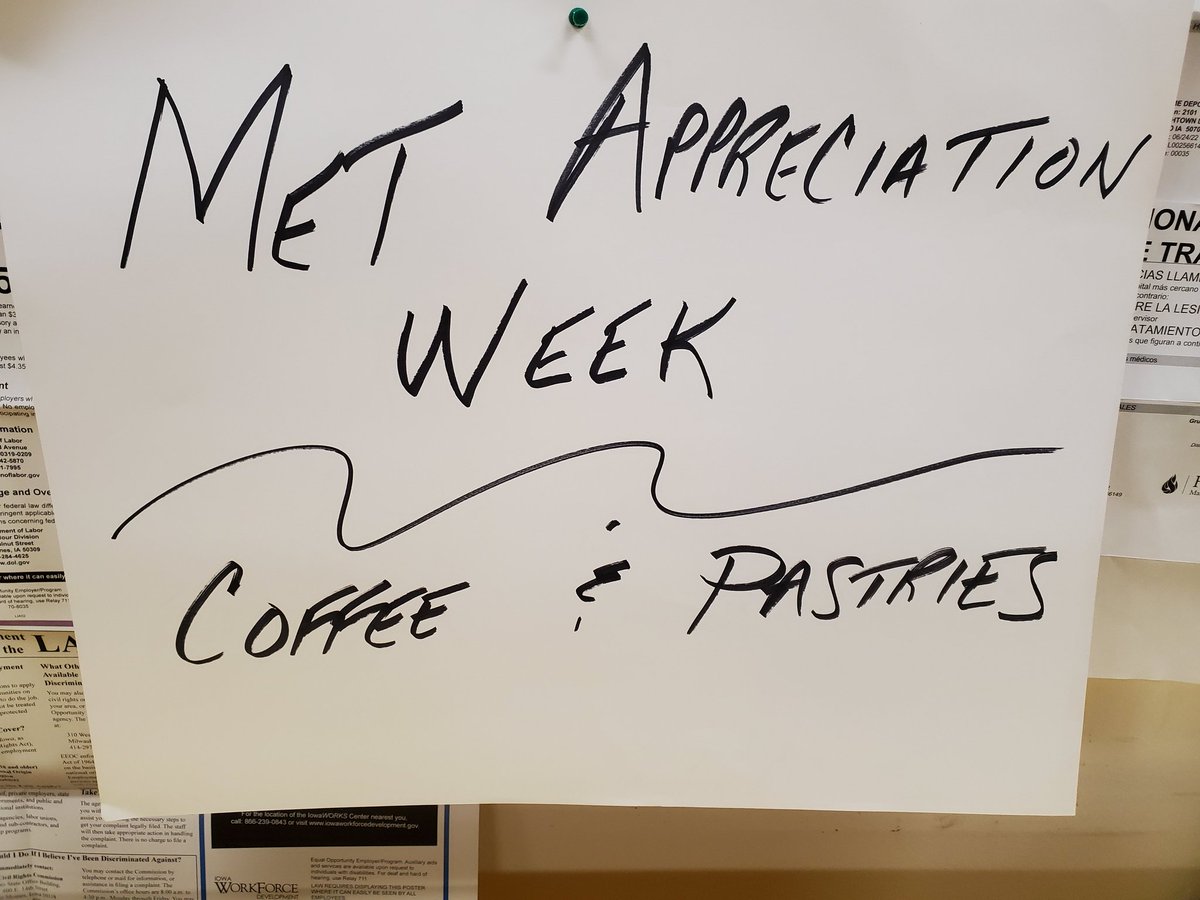 MET APPRECIATION
WEEK
COFFEE & PASTRIES
nt
mation
f Labor
Avenue
0319-0209
42-5870
1-7995
noflabor.gov
ge and Ove
federal law diff
ringent applicabl
s concerning fed
ment of Labor
our Division
nut Street
nes, IA 50309
-284-4625
w.dol.gov
r where it can easily
70-8035
ment LA
the
yment
What Oth
Available
Discrimin
ons to apply
to do the job.
ot be treated
protected
You may als
civil rights o
your area, or
Opportunity
agency. The
at:
Cover?
310 Wes
Milwauk
414-297
Rights Act),
employment
EEOC enfor
Act of 1964
on the basis
s, private employers, state
ruments, and public and
tional institutions.
agencies, labor unions,
ub-contractors, and
p programs.
Take
The age
you wit
assist yo
ng the necessary steps to
get your complaint legally filed. The staff
will then take appropriate action in handling
the complaint. There is no charge to file a
complaint.
uld I Do If I Believe I've Been Discriminated Against?
mmediately contact:
ivil Rights Commission
You may contact the Commission by
telephone or mail for information, or
assistance in filing a complaint. The
Commission's office hours are 8:00 a.m. to
For the location of the IowaWORKS Center nearest you,
call: 866-239-0843 or visit www.iowaworkforcedevelopment.gov
Equal Opportunity Employer/Program. Auxiliary aids
and services are available upon request to
individuals with disabilities. For deaf and hard of
hearing, use Relay 711
IOWA
WORKFORCE
DEVELOPMENT
LAW REQUIRES DISPLAYING THIS POSTER
WHERE IT CAN EASILY BE SEEN BY ALL
EMPLOYEES
ME DEPO
n: 2101
HTOWN D
O IA 5070
06/24/22
L00256614
00035
IONA
E TRA
CIAS LLAM
pital más cercano
contrario:
RE LA LESI
ervisor
ATAMIENTO
s que figuran a conti
s médicos
ALES
Gru
66149